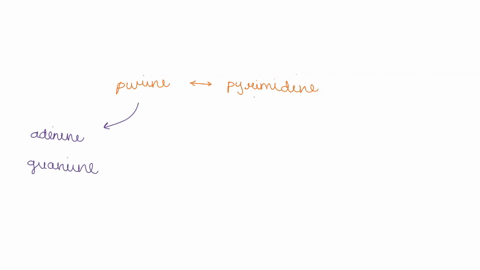 purine ↔ pyrimidene
adenine
guanine